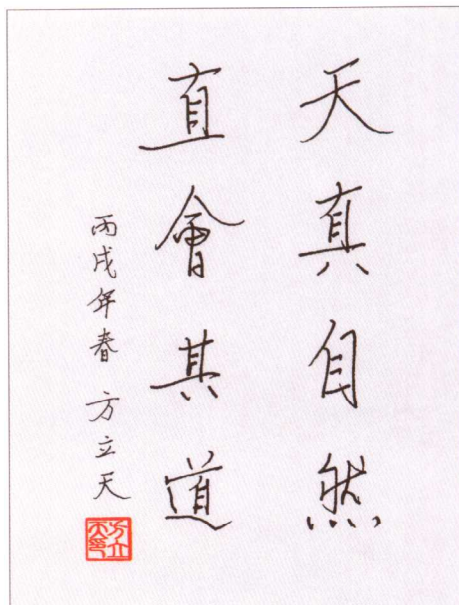 天真自然
直會其道
丙戌年春 方立天
方立天印